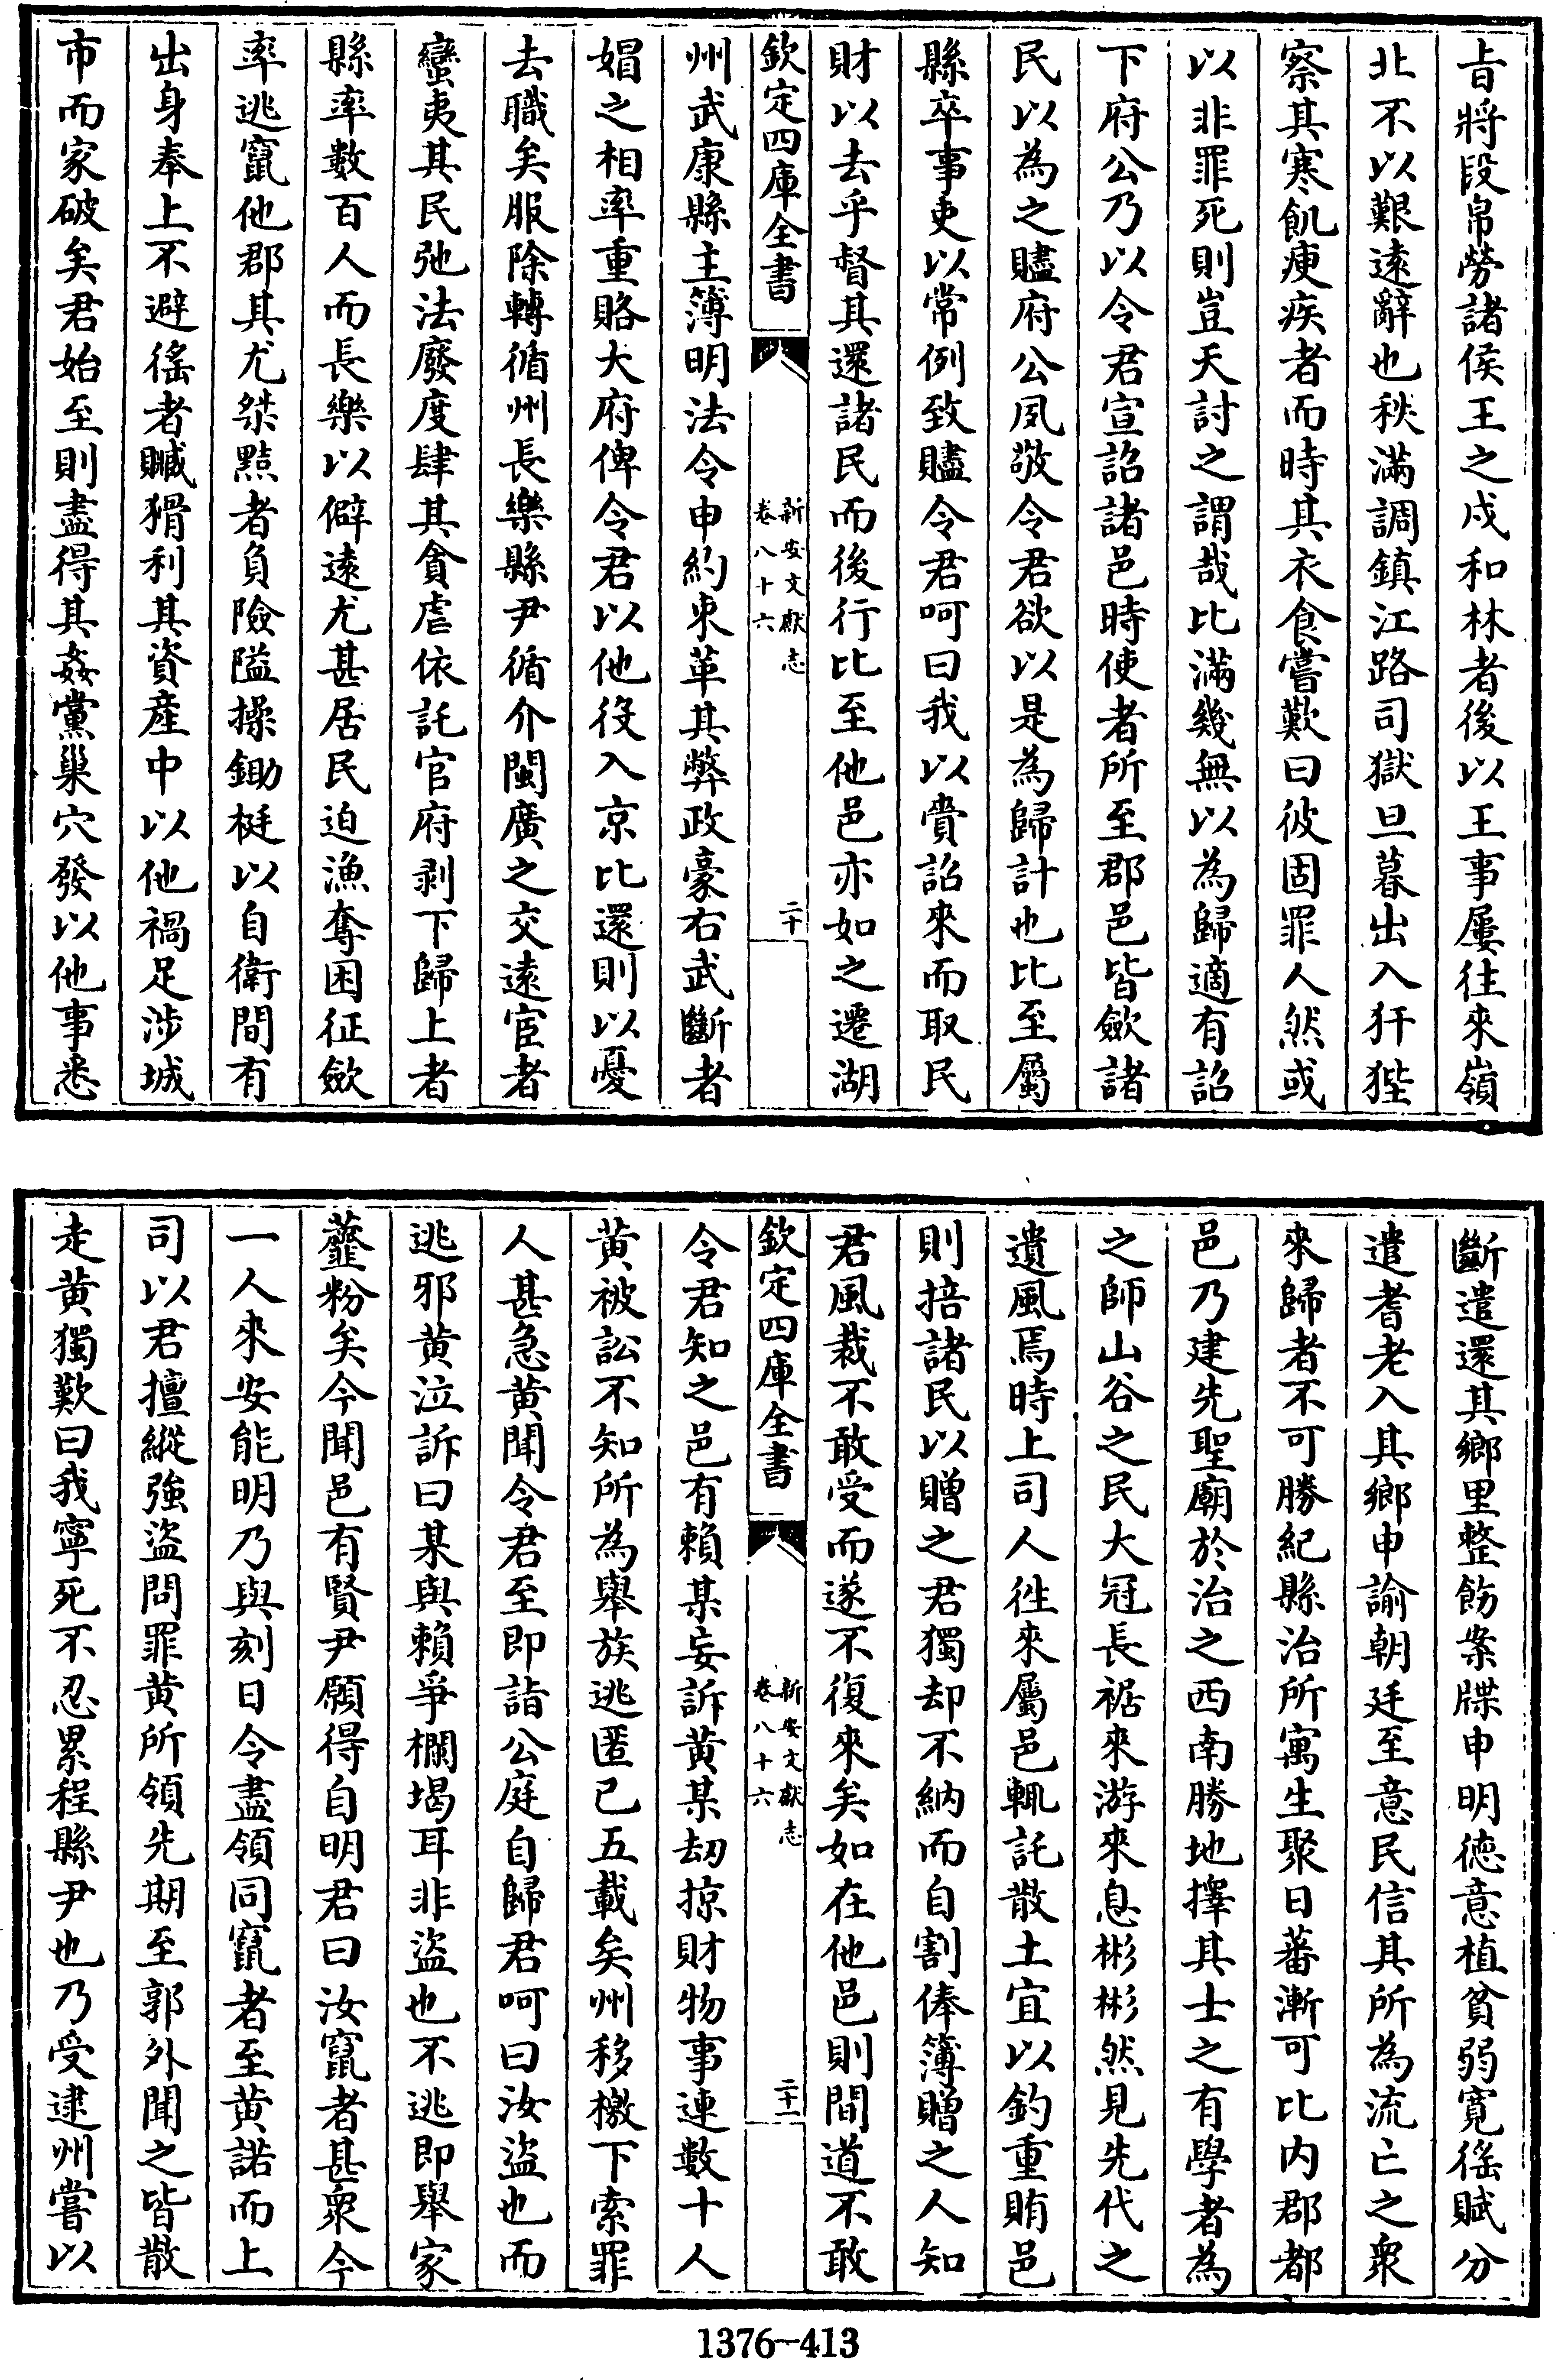 旨將段帛勞諸侯王之戍和林者後以王事屢往來嶺
北不以艱遠辭也秩滿調鎮江路司獄旦暮出入犴狴
察其寒飢瘐疾者而時其衣食嘗歎曰彼固罪人然或
以非罪死則豈天討之謂哉比滿幾無以為歸適有詔
下府公乃以令君宣詔諸邑時使者所至郡邑皆歛諸
民以為之贐府公夙敬令君欲以是為歸計也比至屬
縣卒事吏以常例致贐令君呵曰我以賫詔來而取民
財以去乎督其還諸民而後行比至他邑亦如之遷湖
欽定四庫全書
新安文獻志
卷八十六
二十
州武康縣主簿明法令申約束革其弊政豪右武斷者
娼之相率重賂大府俾令君以他役入京比還則以憂
去職矣服除轉循州長樂縣尹循介閩廣之交遠宦者
蠻夷其民弛法廢度肆其貪虐依託官府剥下歸上者
縣率數百人而長樂以僻遠尤甚居民迫漁奪困征歛
率逃竄他郡其尤桀黠者負險隘操鋤梃以自衛間有
出身奉上不避徭者贓猾利其資産中以他禍足涉城
市而家破矣君始至則盡得其姦黨巢穴發以他事悉
斷遣還其鄉里整飭案牒申明徳意植貧弱寛徭賦分
遣耆老入其鄉申諭朝廷至意民信其所為流亡之衆
來歸者不可勝紀縣治所寓生聚日蕃漸可比内郡都
邑乃建先聖廟於治之西南勝地擇其士之有學者為
之師山谷之民大冠長裾來游來息彬彬然見先代之
遺風焉時上司人徃來屬邑輒託散土宜以釣重賄邑
則掊諸民以贈之君獨却不納而自割俸簿贈之人知
君風裁不敢受而遂不復來矣如在他邑則間道不敢
欽定四庫全書
新安文獻志
卷八十六
二十一
令君知之邑有賴某妄訴黄某刼掠財物事連數十人
黄被訟不知所為舉族逃匿已五載矣州移檄下索罪
人甚急黄聞令君至即詣公庭自歸君呵曰汝盜也而
逃邪黄泣訴曰某與賴爭欄堨耳非盜也不逃即舉家
虀粉矣今聞邑有賢尹願得自明君曰汝竄者甚衆今
一人來安能明乃與刻日令盡領同竄者至黄諾而上
司以君擅縱強盜問罪黄所領先期至郭外聞之皆散
走黄獨歎曰我寧死不忍累程縣尹也乃受逮州嘗以
1376-413